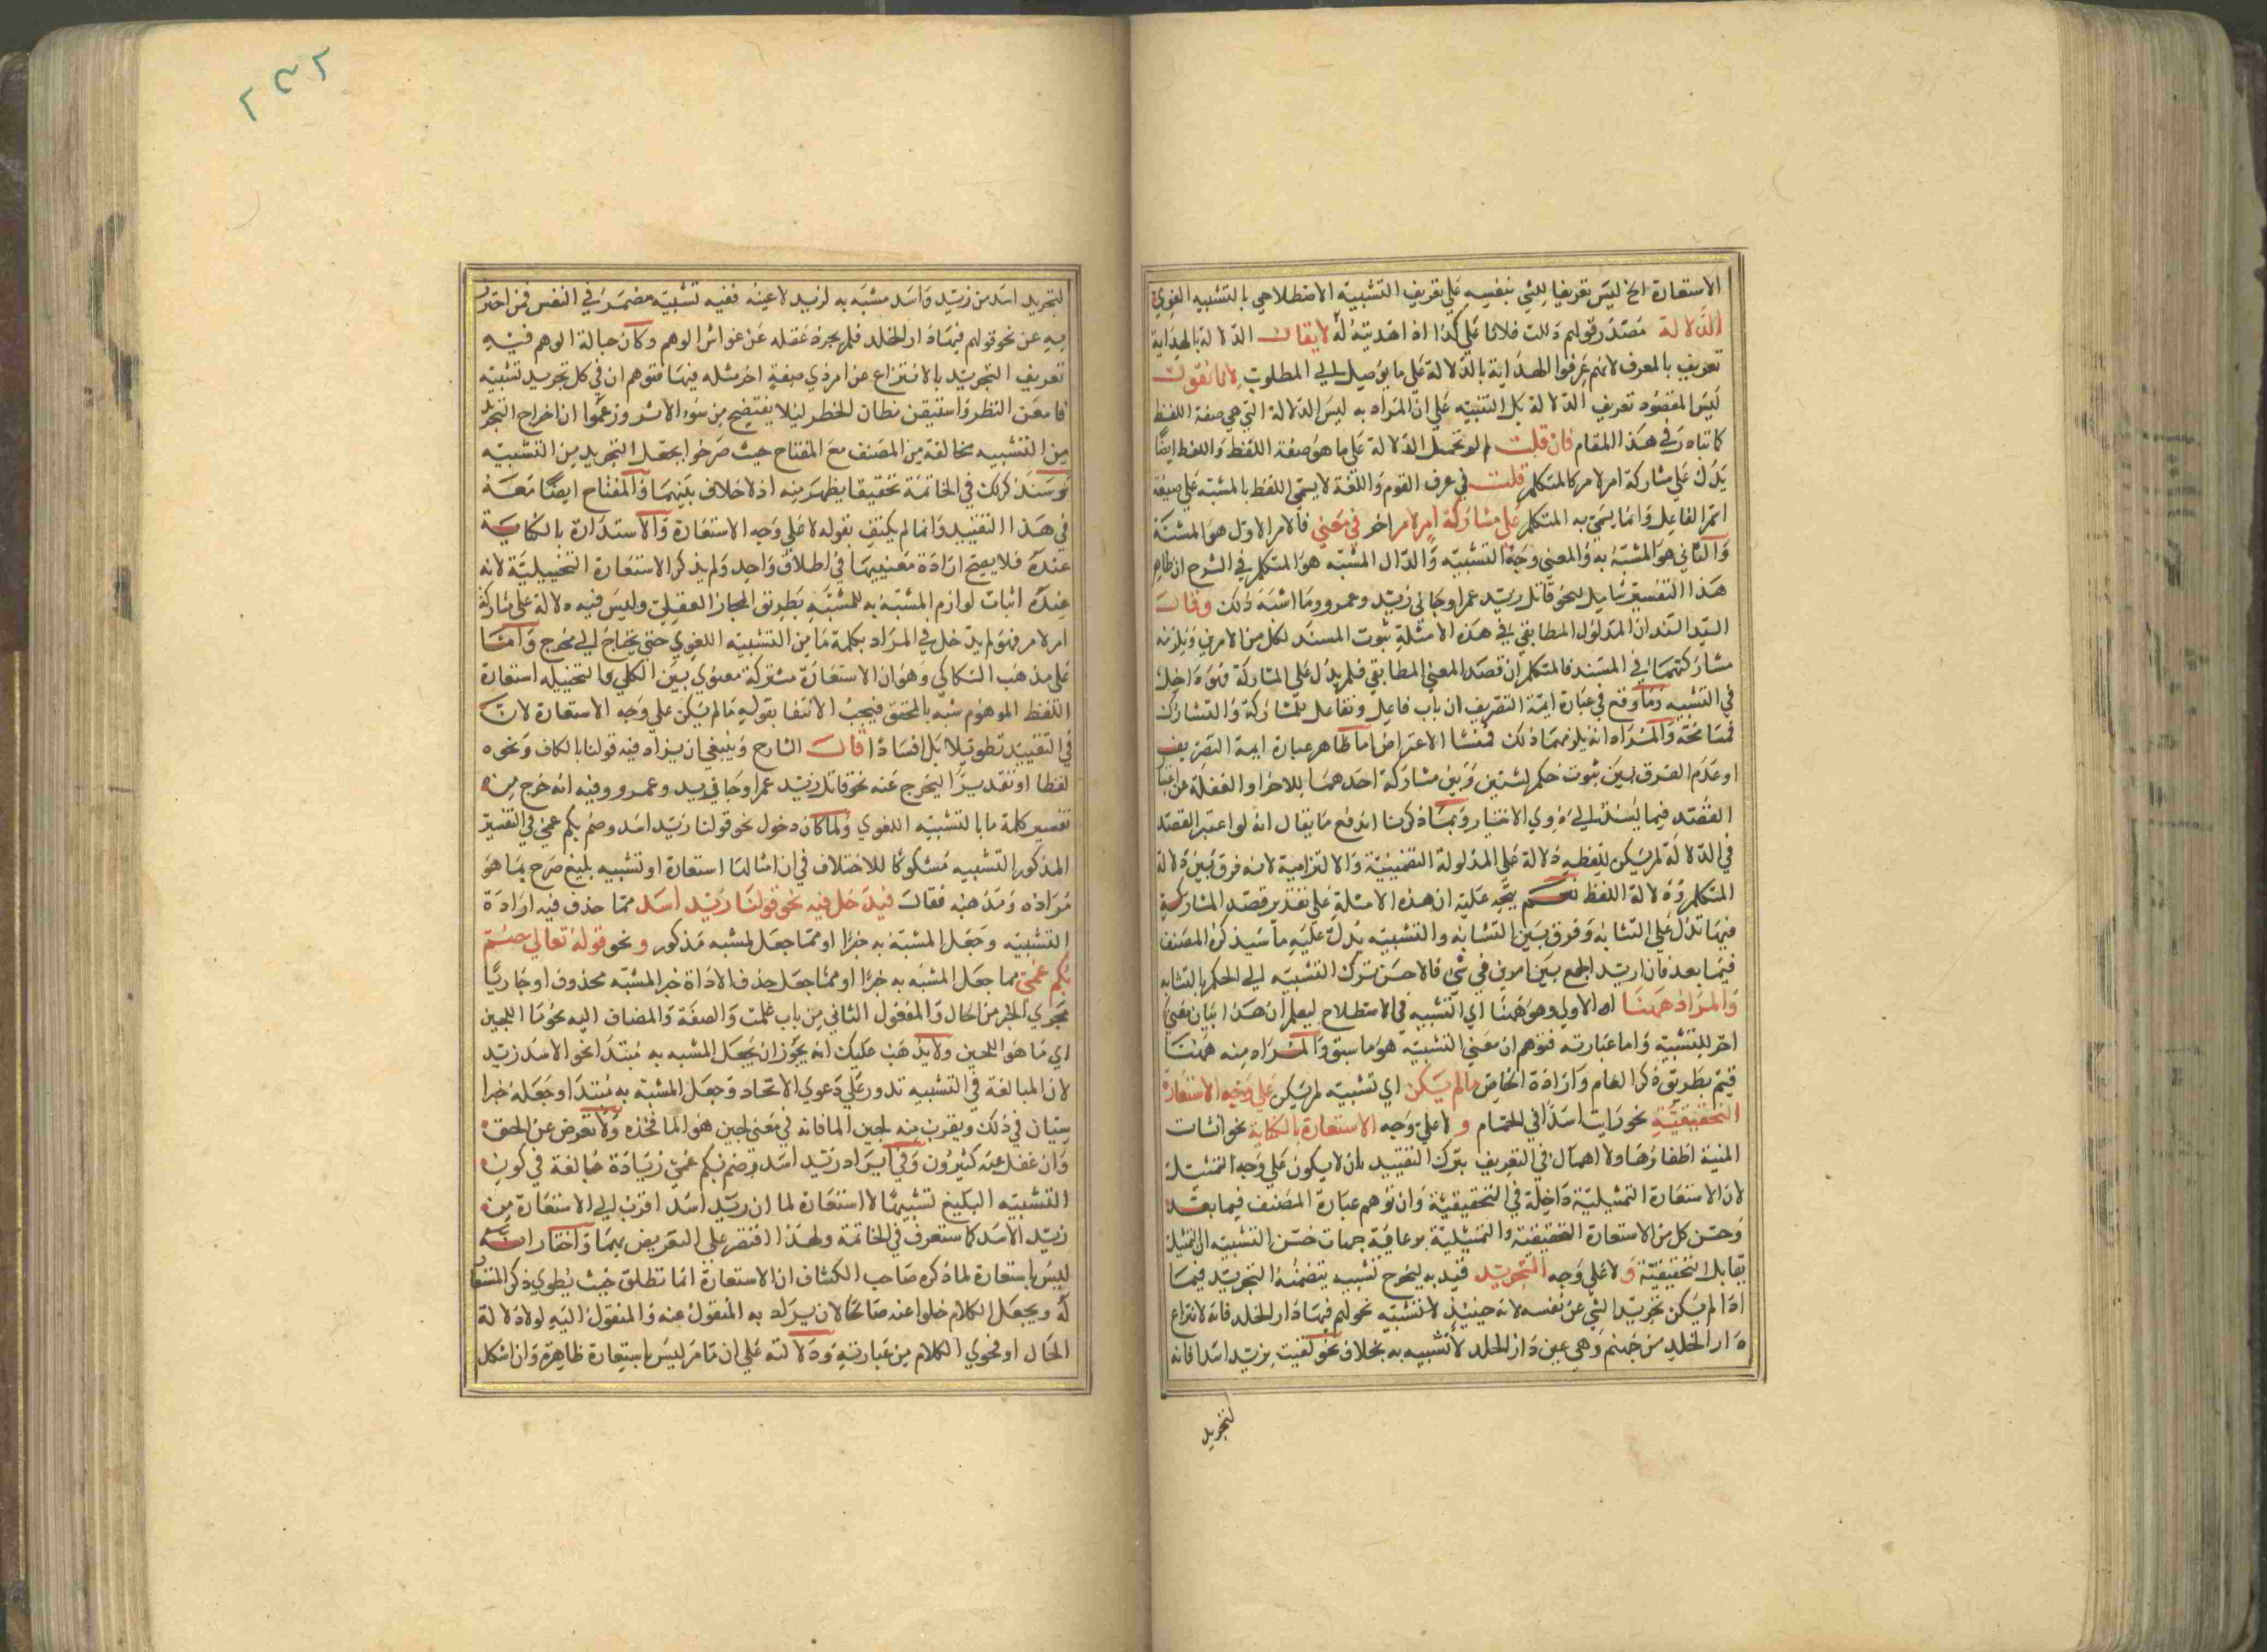 الاستعارة الخ ليس تعريفا للشي بنفسه علي تعريف التشبيه الاصطلاحي بالتشبيه اللغوي
الدلالة مصدر قولهم دللت فلانا علي كذا اذا هديته له لا يقال الدلالة بالهداية
تعريف بالمعرف لانهم عرفوا الهداية بالدلالة علي ما يوصل الي المطلوب لانا نقول
ليس المقصود تعريف الدلالة بل التنبيه علي ان المراد به ليس الدلالة التي هي صفة اللفظ
كما تبادر في هذا المقام فان قلت لم لم تحمل الدلالة علي ما هو صفة اللفظ واللفظ ايضا
يدل علي مشاركة امر لامر كالمتكلم قلت في عرف القوم واللغة لا يسمي اللفظ بالمشبه علي صيغة
اسم الفاعل وانما يسمي به المتكلم علي مشاركة امر لامر اخر في معني فالامر الاول هو المشبه
والثاني هو المشبه به والمعني وجه التشبيه والدال المشبه هو المتكلم في الشرح ان ظاهر
هذا التفسير شامل لنحو قاتل زيد عمرا وجاني زيد وعمرو وما اشبه ذلك وقال
السيد السند ان المدلول المطابقي في هذه الامثلة ثبوت المسند لكل من الامرين ويلزمه
مشاركتهما في المسند فالمتكلم ان قصد المعني المطابقي فلم يدل علي المشاركة فهو داخل
في التشبيه وما وقع في عبارة ايمة التصريف ان باب فاعل وتفاعل للمشاركة والتشارك
فمسامحة والمراد انه يلزمهما ذلك فمنشا الاعتراض اما ظاهر عبارة ايمة التصريف
او عدم الفرق بين ثبوت حكم لشيين وبين مشاركة احدهما للاخر او الغفلة عن اعتبار
القصد فيما يسند الي ذوي الاختيار وبما ذكرنا اندفع ما يقال انه لو اعتبر القصد
في الدلالة لم يكن للفظه دلالة علي المدلولة التضمينية والالتزامية لانه فرق بين دلالة
المتكلم ودلالة اللفظ نعم يتجه عليه ان هذه الامثلة علي تقدير قصد المشاركة
فيها تدل علي التشابه وفرق بين التشابه والتشبيه يدل عليه ما سيذكره المصنف
فيما بعد فان اريد الجمع بين امرين في شي فالاحسن ترك التشبيه الي الحكم بالتشابه
والمراد ههنا اه الاولي وهو ههنا اي التشبيه في الاصطلاح ليعلم ان هذا بيان معني
اخر للتشبيه واما عبارته فتوهم ان معني التشبيه هو ما سبق والمراد منه ههنا
قيم بطريق ذكر العام وارادة الخاص ما لم يكن اي تشبيه لم يكن علي وجه الاستعارة
التحقيقية نحو رايت اسدا في الحمام و لا علي وجه الاستعارة بالكناية نحو انشبت
المنية اظفارها ولا اهمال في التعريف بترك التقييد بان لا يكون علي وجه التمثيل
لان الاستعارة التمثيلية داخلة في التحقيقية وان توهم عبارة المصنف فيما بعد
وحسن كل من الاستعارة التحقيقية والتمثيلية برعاية جهات حسن التشبيه ان التمثيل
يقابل التحقيقية و لا علي وجه التجريد قيد به ليخرج تشبيه يتضمنه التجريد فيما
اذا لم يكن تجريد الشي عن نفسه لانه حينيذ لا تشبيه نحو لهم فيها دار الخلد فانه لانتزاع
دار الخلد من جهنم وهي عين دار الخلد لا تشبيه به بخلاف نحو لقيت بزيد اسدا فانه
لتجريد
٢٣٢
لتجريد اسد من زيد واسد مشبه به لزيد لا عينه ففيه تشبيه مضمر في النفس فمن احترز
به عن نحو قولهم فيها دار الخلد فلم يجرد عقله عن غواش الوهم وكان حبالة الوهم فيه
تعريف التجريد بالانتزاع عن امر ذي صفة اخر مثله فيها فتوهم ان في كل تجريد تشبيه
فامعن النظر واستيقن مظان الخطر ليلا يفتضح من سوء الاثر وزعموا ان اخراج التجريد
من التشبيه مخالفة من المصنف مع المفتاح حيث صرحوا بجعل التجريد من التشبيه
وسنذكر لك في الخاتمة تحقيقا يظهر منه ان لا خلاف بينهما والمفتاح ايضا معه
في هذا التقييد وانما لم يكتف بقوله لا علي وجه الاستعارة والاستدارة بالكناية
عنده فلا يصح ارادة معنييها في اطلاق واحد ولم يذكر الاستعارة التخييلية لانه
عنده اثبات لوازم المشبه به للمشبه بطريق المجاز العقلي وليس فيه دلالة علي مشاركة
امر لامر فهو لم يدخل في المراد بكلمة ما من التشبيه اللغوي حتي يحتاج الي مخرج واما
علي مذهب السكاكي وهو ان الاستعارة مشتركة معنوي بين الكلي والتخييلية استعارة
اللفظ الموهوم شبه بالمحقق فيجب الانتفا بقوله ما لم يكن علي وجه الاستعارة لان
في التقييد تطويلا بل افسادا قال الشارح وينبغي ان يزاد فيه قولنا بالكاف ونحوه
لفظا او تقديرا ليخرج عنه نحو قاتل زيد عمرا وجاني زيد وعمرو وفيه انه خرج منه
تفسير كلمة ما بالتشبيه اللغوي ولما كان دخول نحو قولنا زيد اسد وصم بكم عمي في التفسير
المذكور التشبيه مشكوكا للاختلاف في ان امثالها استعارة او تشبيه بليغ صرح بما هو
مراده ومذهبه فقال فيدخل فيه نحو قولنا زيد اسد مما حذف فيه اراداة
التشبيه وجعل المشبه به خبرا او مما جعل لمشبه مذكور و نحو قوله تعالي صم
بكم عمي مما جعل المشبه به خبرا او مما جعل حذف الاداة خبر المشبه محذوف او جاريا
مجري الخبر من الحال والمفعول الثاني من باب علمت والصفة والمضاف اليه نحو ما اللجين
اي ما هو اللجين ولا يذهب عليك انه يجوز ان يجعل المشبه به مبتدا نحو الاسد زيد
لان المبالغة في التشبيه تدور علي دعوي الاتحاد وجعل المشبه به مبتدا وجعله خبرا
سيان في ذلك ويقرب منه لجين الما فانه في معني لجين هو الما فخذه ولا تعرض عن الحق
وان غفل عنه كثيرون وفي ايراد زيد اسد وصم بكم عمي زيادة مبالغة في كون
التشبيه البليغ تشبيها لا استعارة لما ان زيد اسد اقرب الي الاستعارة من
زيد الاسد كما ستعرف في الخاتمة ولهذا اقتصر علي التعريض بهما واختار انه
ليس باستعارة لما ذكره صاحب الكشاف ان الاستعارة انما تطلق حيث يطوي ذكر المستعار
له ويجعل الكلام خلوا عنه صالحا لان يراد به المنقول عنه والمنقول اليه لولا دلالة
الحال او فحوي الكلام من عبارته ودلالته علي ان ما مر ليس باستعارة ظاهرة وان اشكل